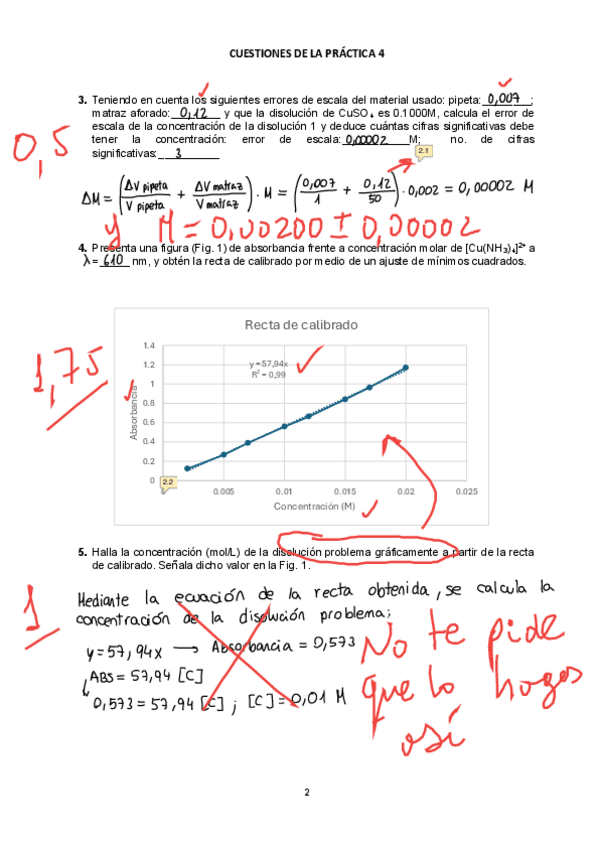 CUESTIONES DE LA PRÁCTICA 4
3. Teniendo en cuenta los siguientes errores de escala del material usado: pipeta: 0,007;
matraz aforado: 0,12 y que la disolución de CuSO₄ es 0.1000M, calcula el error de
escala de la concentración de la disolución 1 y deduce cuántas cifras significativas debe
tener la concentración: error de escala: 0,00002 M; no. de cifras
significativas: 3
2.1
0,5
ΔM = (ΔV pipeta / V pipeta + ΔV matraz / V matraz) · M = (0,007 / 1 + 0,12 / 50) · 0,002 = 0,00002 M
y M = 0,00200 ± 0,00002
4. Presenta una figura (Fig. 1) de absorbancia frente a concentración molar de [Cu(NH₃)₄]²⁺ a
λ = 610 nm, y obtén la recta de calibrado por medio de un ajuste de mínimos cuadrados.
1,75
Recta de calibrado
y = 57,94x
R² = 0,99
Absorbancia
1.4
1.2
1
0.8
0.6
0.4
0.2
0
2.2
0 0.005 0.01 0.015 0.02 0.025
Concentración (M)
5. Halla la concentración (mol/L) de la disolución problema gráficamente a partir de la recta
de calibrado. Señala dicho valor en la Fig. 1.
1
Mediante la ecuación de la recta obtenida, se calcula la
concentración de la disolución problema;
y = 57,94x → Absorbancia = 0,573
ABS = 57,94 [C]
0,573 = 57,94 [C] ; [C] = 0,01 M
No te pide
que lo hagas
así
2